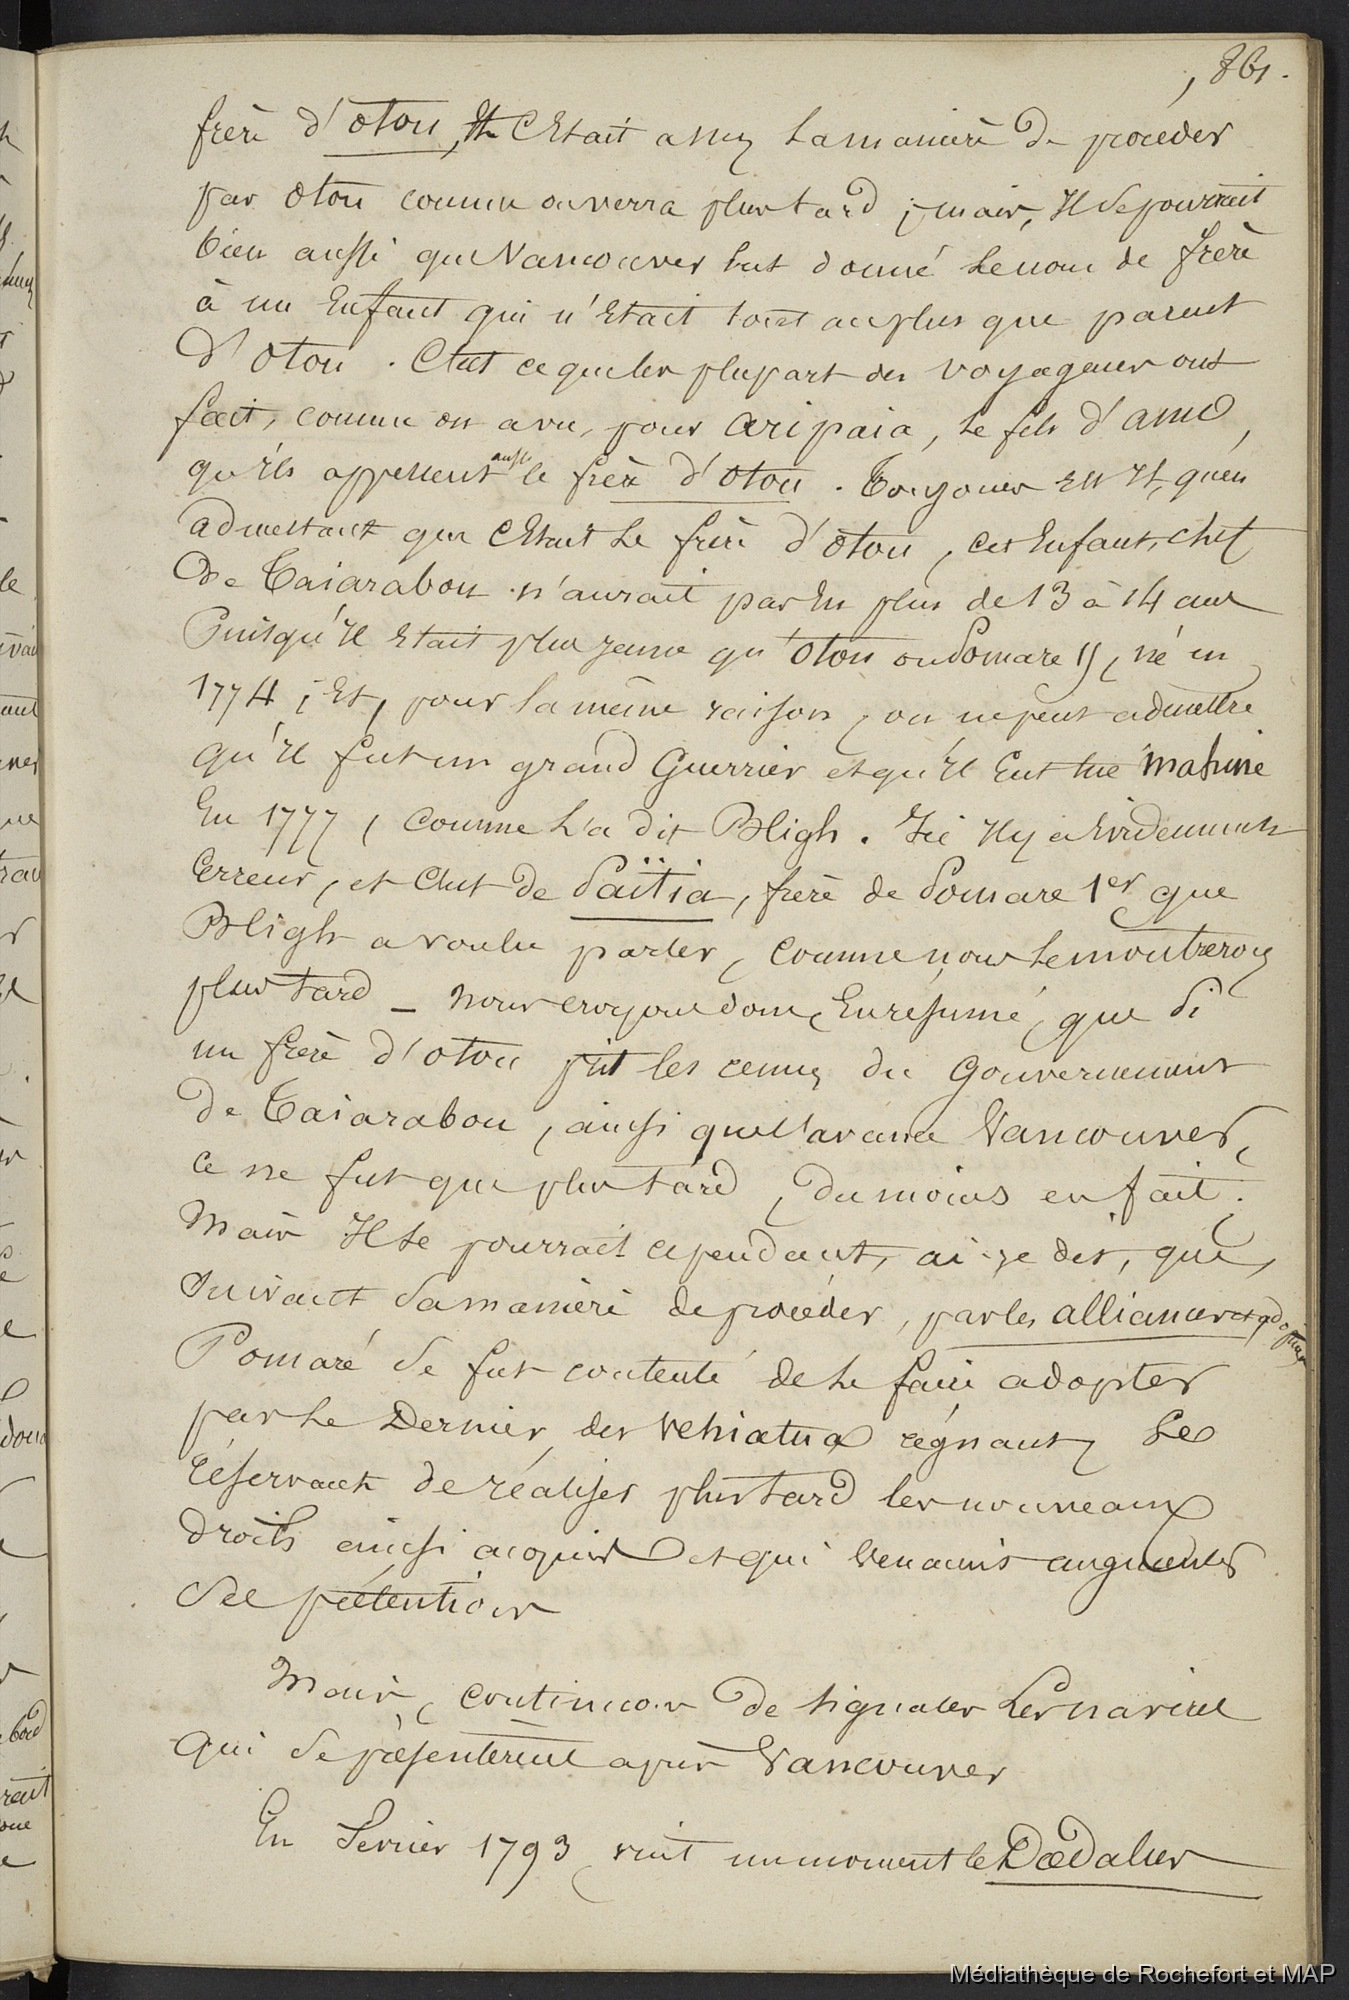 , 861.
frère d'Otou, C'Etait assez la manière de procéder
par Otou comme on verra plus tard ; mais, Il se pourrait
bien aussi que Vancouver eut donné le nom de frère
à un Enfant qui n'Etait tout au plus que parent
d'Otou. C'est ce que la plupart des voyageurs ont
fait, comme on a vu, pour Aripaia, le fils d'Amo,
qu'ils appellent aussi le frère d'Otou. Toujours Est Il, qu'en
admettant que C'Etait le frère d'Otou, cet Enfant, chef
De Taiarabou n'aurait pas Eu plus de 13 à 14 ans
Puisqu'Il Etait plus jeune qu'Otou ou Pomare II, né en
1774 ; Et, pour la même raison, on ne peut admettre
qu'Il fut un grand Guerrier et qu'Il Eut tué Mahine
En 1777, comme l'a dit Bligh. Ici Il y a Evidemment
Erreur, et C'est de Païtia, frère de Pomare 1er que
Bligh a voulu parler, comme nous le montrerons
plus tard _ Nous croyons donc, En résumé, que si
un frère d'Otou prit les rennes du Gouvernement
De Taiarabou, ainsi que l'avance Vancouver,
ce ne fut que plus tard, du moins en fait.
Mais Il se pourrait cependant, ai-je dit, que,
suivant sa manière de procéder, par les alliances et adoptions
Pomaré se fut contenté de le faire adopter
par le Dernier des Vehiatua régnants se
réservant de réaliser plus tard les nouveaux
droits ainsi acquis et qui venaient augmenter
ses prétentions
Mais, continuons de signaler les navires
qui se présentèrent après Vancouver
En Fevrier 1793, vint un moment le Dædalus
Médiathèque de Rochefort et MAP